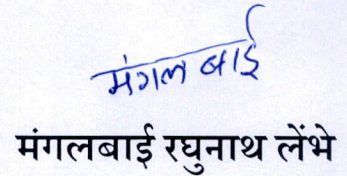 मंगल बाई
मंगलबाई रघुनाथ लेंभे